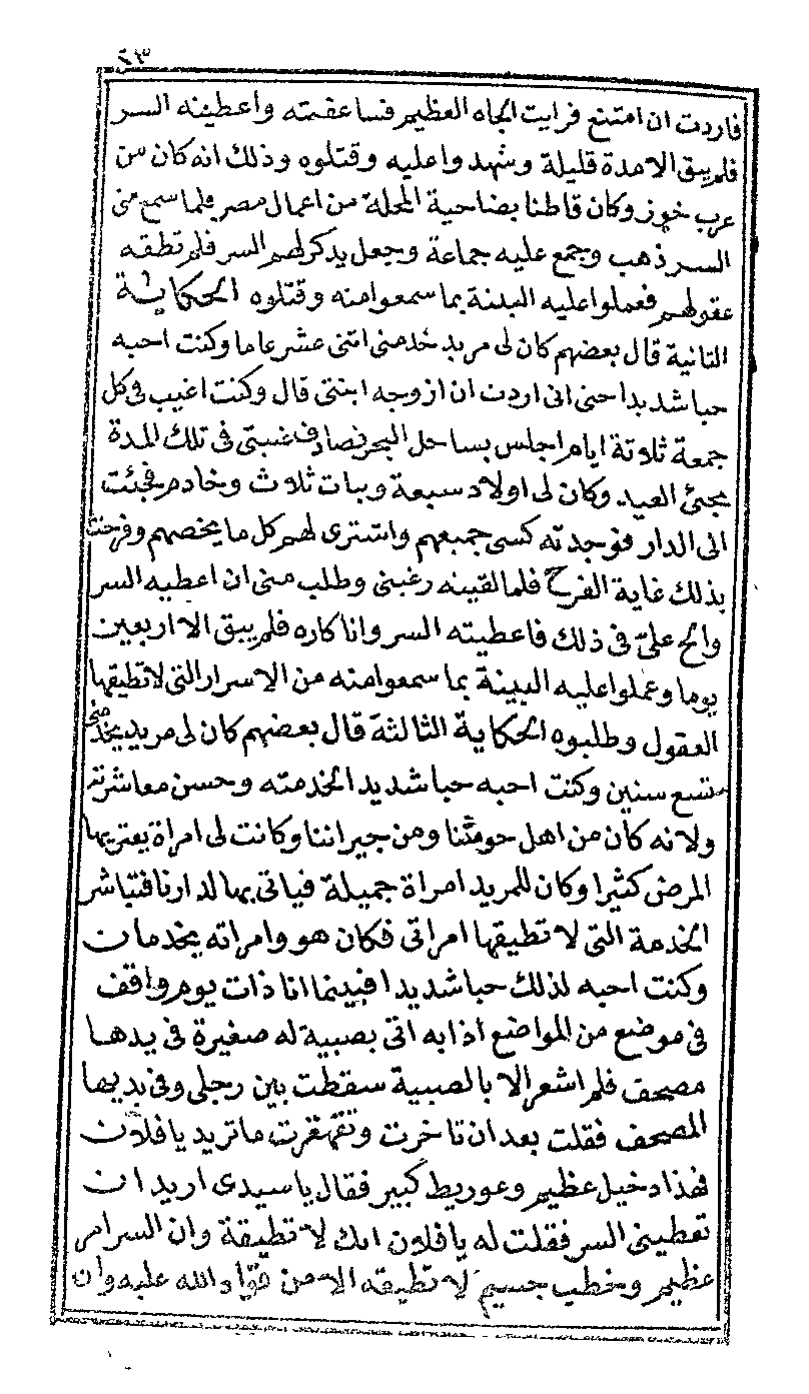 ٢٣
فاردت ان امتنع فرايت الجاه العظيم فساعفته واعطيته السر
فلم يبق الا مدة قليلة وشهد واعليه وقتلوه وذلك انه كان من
عرب خوز وكان قاطنا بضاحية المحلة من اعمال مصر فلما سمع منى
السر ذهب وجمع عليه جماعة وجعل يدكر لهم السر فلم تطقه
عقولهم فعملوا عليه البينة بما سمعوا منه وقتلوه الحكاية
التانية قال بعضهم كان لى مريد خدمنى اتنى عشر عاما وكنت احبه
حبا شديدا حتى انى اردت ان ازوجه ابنتى قال وكنت اغيب فى كل
جمعة ثلاتة ايام اجلس بساحل البحر فصادف غيبتى فى تلك المدة
مجئ العيد وكان لى اولاد سبعة وبنات ثلاث وخادم فجئت
الى الدار فوجدته كسى جميعهم واشترى لهم كل ما يخصهم وفرحت
بذلك غاية الفرح فلما لقيته رغبنى وطلب منى ان اعطيه السر
والح على فى ذلك فاعطيته السر وانا كاره فلم يبق الا اربعين
يوما وعملوا عليه البينة بما سمعوا منه من الاسرار التى لا تطيقها
العقول وطلبوه الحكاية الثالثة قال بعضهم كان لى مريد يخدمنى
تسع سنين وكنت احبه حبا شديدا لخدمته وحسن معاشرته
ولانه كان من اهل حومتنا ومن جيراننا وكانت لى امراة يعتريها
المرض كثيرا وكان للمريد امراة جميلة فياتى بها لدارنا فتباشر
الخدمة التى لا تطيقها امراتى فكان هو وامراته يخدمان
وكنت احبه لذلك حبا شديدا فبينما انا ذات يوم واقف
فى موضع من المواضع اذا به اتى بصبية له صغيرة فى يدها
مصحف فلم اشعر الا بالصبية سقطت بين رجلى وفى يديها
المصحف فقلت بعد ان تاخرت وتقهقرت ما تريد يا فلان
فهذا دخيل عظيم وعوريط كبير فقال يا سيدى اريد ان
تعطينى السر فقلت له يا فلان انك لا تطيقة وان السر امر
عظيم وخطب جسيم لا تطيقه الا من قواه الله عليه وان